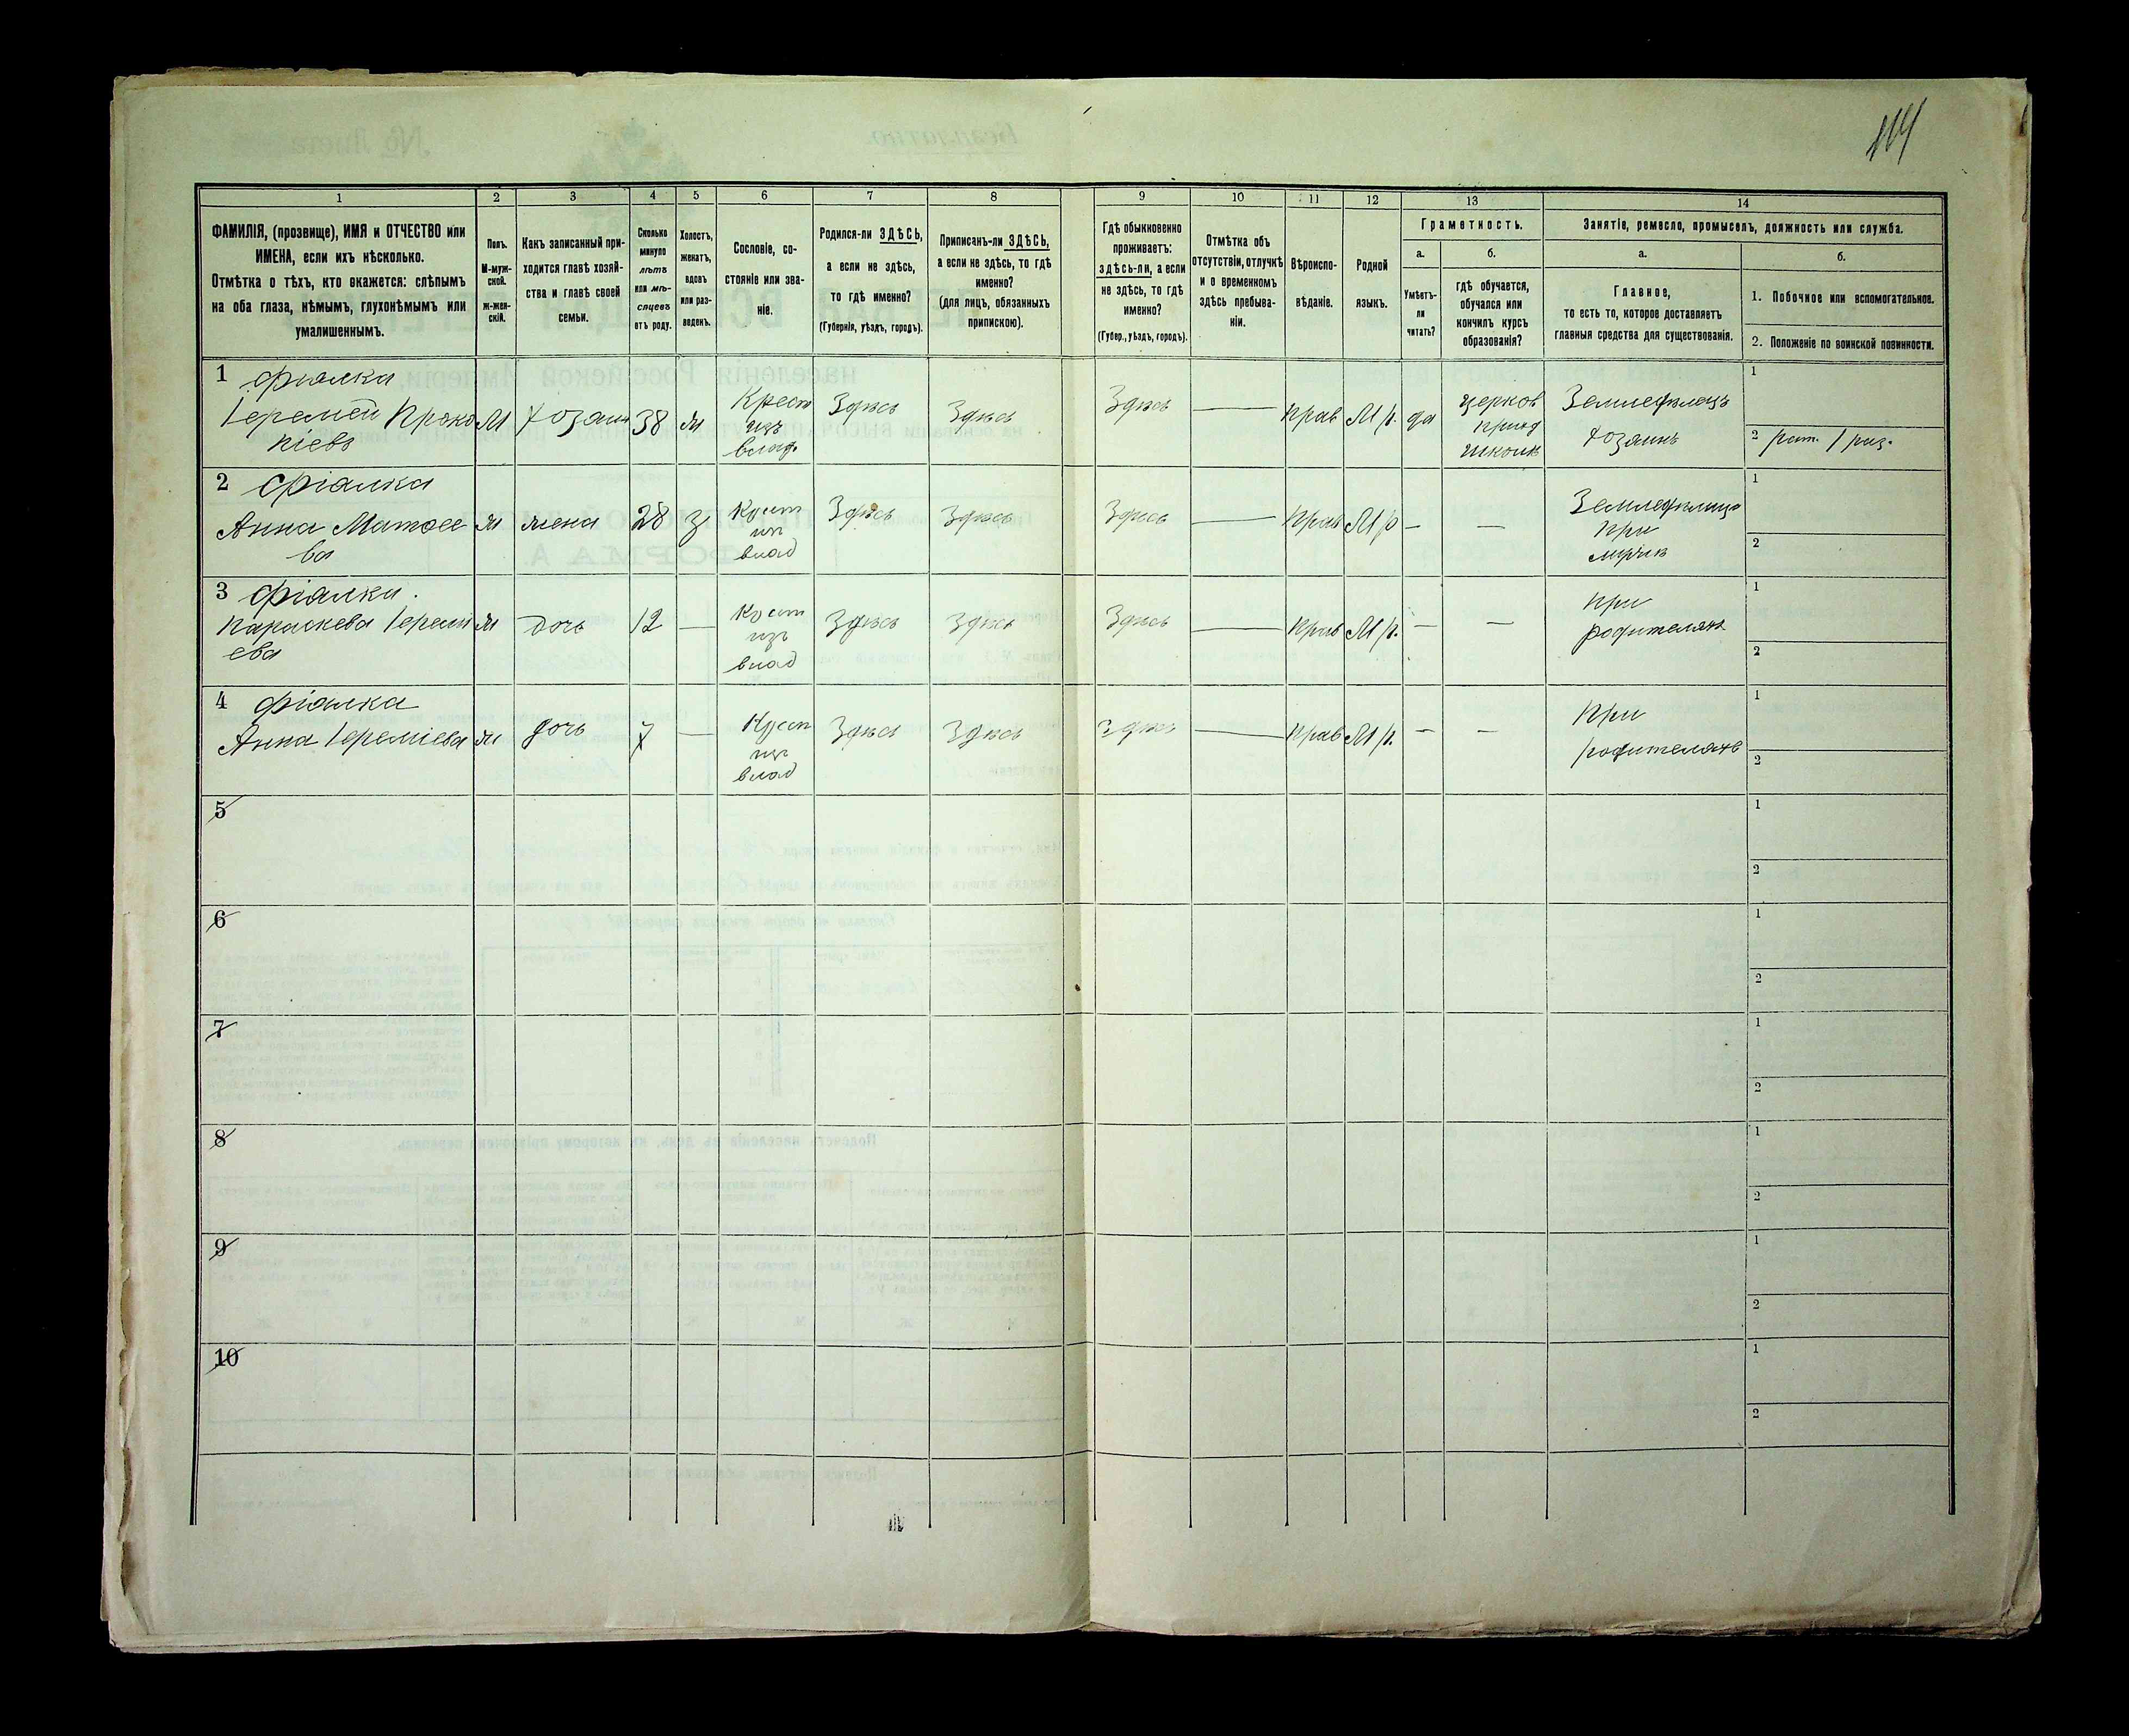 114
1
2
3
4
5
6
7
8
9
10
11
12
13
14
ФАМИЛІЯ, (прозвище), ИМЯ и ОТЧЕСТВО или
ИМЕНА, если ихъ нѣсколько.
Отмѣтка о тѣхъ, кто окажется: слѣпымъ
на оба глаза, нѣмымъ, глухонѣмымъ или
умалишеннымъ.
Полъ.
М-муж-
ской.
ж-жен-
скій.
Какъ записанный при-
ходится главѣ хозяй-
ства и главѣ своей
семьи.
Сколько
минуло
лѣтъ
или мѣ-
сяцевъ
отъ роду.
Холостъ,
женатъ,
вдовъ
или раз-
веденъ.
Сословіе, со-
стояніе или зва-
ніе.
Родился-ли ЗДѢСЬ,
а если не здѣсь,
то гдѣ именно?
(Губернія, уѣздъ, городъ).
Приписанъ-ли ЗДѢСЬ,
а если не здѣсь, то гдѣ
именно?
(для лицъ, обязанныхъ
припискою).
Гдѣ обыкновенно
проживаетъ:
здѣсь-ли, а если
не здѣсь, то гдѣ
именно?
(Губер., уѣздъ, городъ).
Отмѣтка объ
отсутствіи, отлучкѣ
и о временномъ
здѣсь пребыва-
ніи.
Вѣроиспо-
вѣданіе.
Родной
языкъ.
Граметность.
а.
Умѣетъ-
ли
читать?
б.
гдѣ обучается,
обучался или
кончилъ курсъ
образованія?
Занятіе, ремесло, промыселъ, должность или служба.
а.
Главное,
то есть то, которое доставляетъ
главныя средства для существованія.
б.
1. Побочное или вспомогательное.
2. Положеніе по воинской повинности.
1 Фіалка
Іеремей Проко
піевъ
М
хозяин
38
ж
Крест
изъ
влад.
Здѣсь
Здѣсь
Здѣсь
—
Прав
М р.
да
церков
приход
школѣ
Земледѣлецъ
хозяинъ
1
2 рат. 1 раз.
2 Фіалка
Анна Матөее
ва
ж
жена
28
з
Крест
изъ
влад
Здѣсь
Здѣсь
Здѣсь
—
Прав
М р
—
—
При
мужѣ
1
2
3 Фіалка.
Параскева Іеремі
ева
ж
дочь
12
—
Крест
изъ
влад
Здѣсь
Здѣсь
Здѣсь
—
Прав
М р.
—
—
При
родителяхъ
1
2
4 Фіалка
Анна Іереміева
ж
дочь
7
—
Крест
изъ
влад
Здѣсь
Здѣсь
Здѣсь
—
Прав
М р.
—
—
При
родителяхъ
1
2
5
1
2
6
1
2
7
1
2
8
1
2
9
1
2
10
1
2